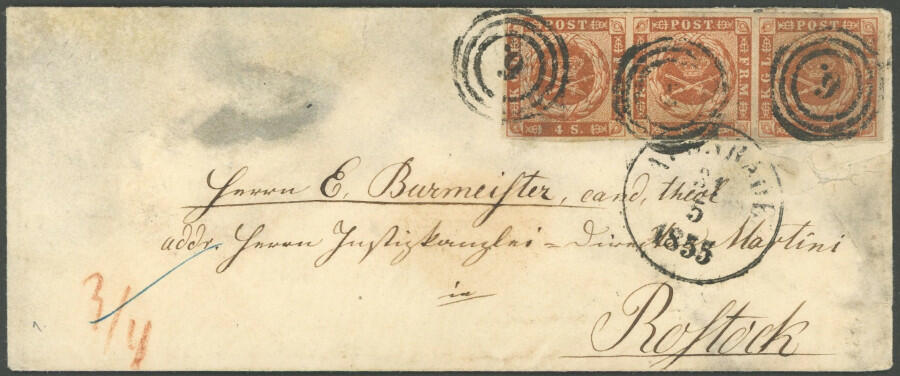 POST POST POST
FRM KGL
4 S.
9 9
APENRADE
31
5
1855
Herrn E. Burmeister, cand, theol
addr. Herrn Justizkanzlei=Director Martini
in
Rostock
3/4